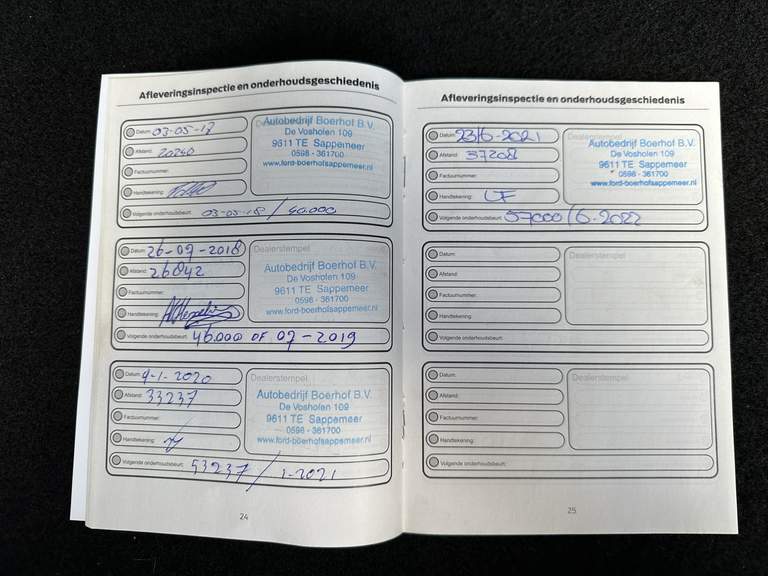 Afleveringsinspectie en onderhoudsgeschiedenis
Datum: 03-05-18
Afstand: 20240
Factuurnummer:
Handtekening:
Autobedrijf Boerhof B.V.
De Vosholen 109
9611 TE Sappemeer
0598 - 361700
www.ford-boerhofsappemeer.nl
Volgende onderhoudsbeurt: 03-05-18 / 40.000
Datum: 26-09-2018
Afstand: 26842
Factuurnummer:
Handtekening:
Dealerstempel
Autobedrijf Boerhof B.V.
De Vosholen 109
9611 TE Sappemeer
0598 - 361700
www.ford-boerhofsappemeer.nl
Volgende onderhoudsbeurt: 46.000 OF 09-2019
Datum: 9-1-2020
Afstand: 33237
Factuurnummer:
Handtekening:
Dealerstempel
Autobedrijf Boerhof B.V.
De Vosholen 109
9611 TE Sappemeer
0598 - 361700
www.ford-boerhofsappemeer.nl
Volgende onderhoudsbeurt: 53237 / 1-2021
24
Afleveringsinspectie en onderhoudsgeschiedenis
Datum: 23/6-2021
Afstand: 37208
Factuurnummer:
Handtekening:
Dealerstempel
Autobedrijf Boerhof B.V.
De Vosholen 109
9611 TE Sappemeer
0598 - 361700
www.ford-boerhofsappemeer.nl
Volgende onderhoudsbeurt: 57000/6-2022
Datum:
Afstand:
Factuurnummer:
Handtekening:
Dealerstempel
Volgende onderhoudsbeurt:
Datum:
Afstand:
Factuurnummer:
Handtekening:
Dealerstempel
Volgende onderhoudsbeurt:
25